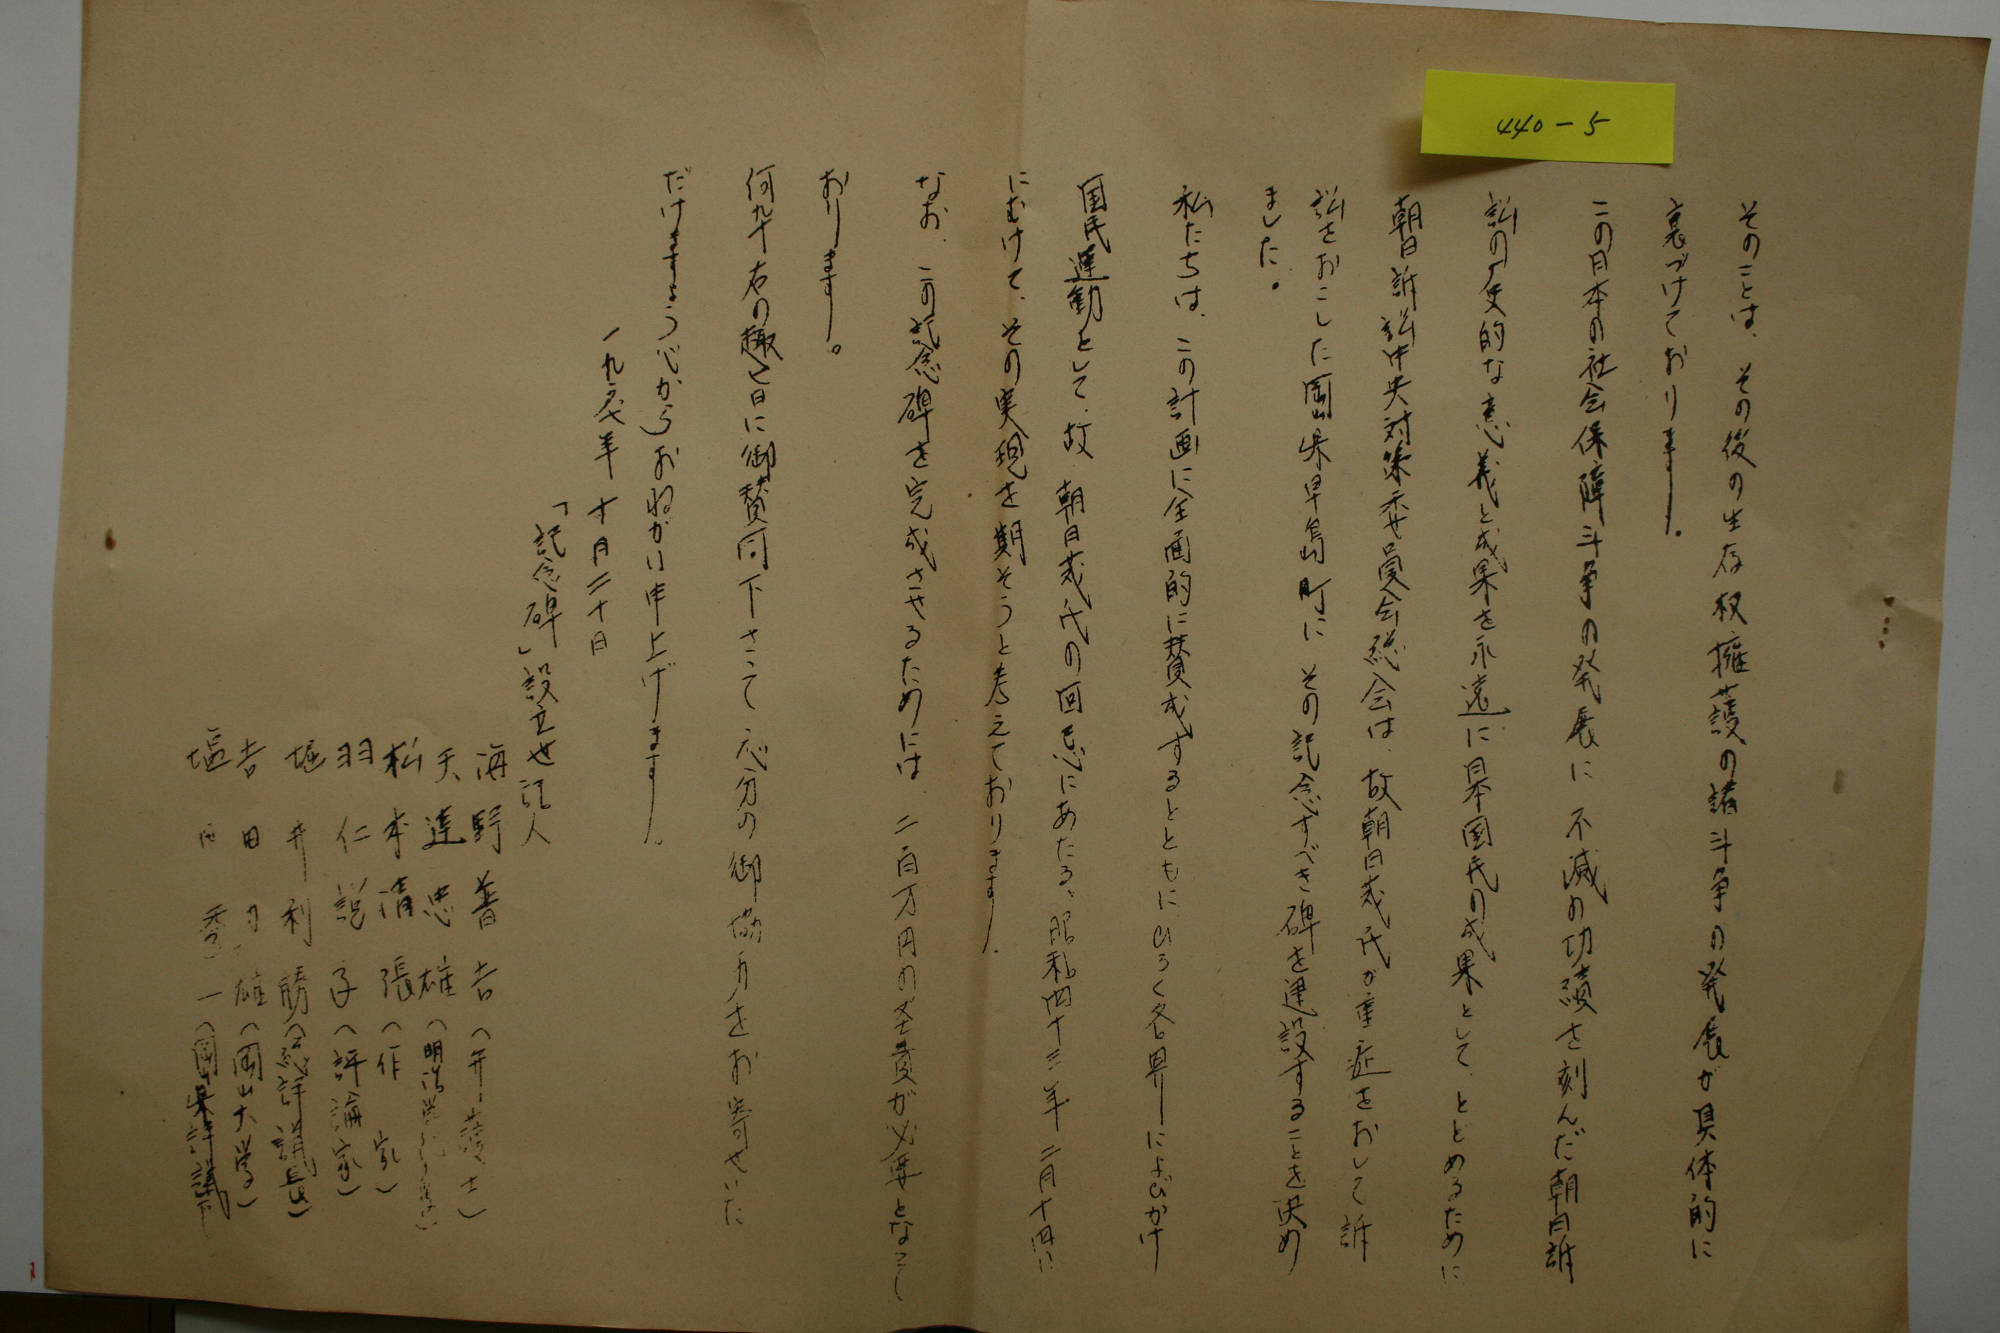 440-5
そのことは、その後の生存权擁護の諸斗争の発展が具体的に
裏づけております。
この日本の社会保障斗争の発展に不滅の功績を刻んだ朝日訴
訟の歴史的な意義と成果を永遠に日本国民の成果として、とどめるために
朝日訴訟中央対策委員会総会は、故朝日茂氏が重症をおして訴
訟をおこした岡山県早島町に その記念すべき碑を建設することを決め
ました。
私たちは、この計画に全面的に賛成するとともにひろく各界によびかけ
国民運動として、故 朝日茂氏の回忌にあたる、昭和四十三年 二月十四日
にむけて、その実現を期そうと考えております。
なお、この記念碑を完成させるためには 二百万円の 費が必要となって
おります。
何卆右の趣旨に御賛同下さって 応分の御協力をお寄せいた
だけますよう心からおねがい申上げます。
一九六 年 十月二十日
「記念碑」設立世話人
海野普吉（弁護士）
天達忠雄（明治学院 ）
松本清張（作家）
羽仁説子（評論家）
堀井利勝（総評議長）
吉田 雄（岡山大学）
塩 秀一（岡山県評議 ）